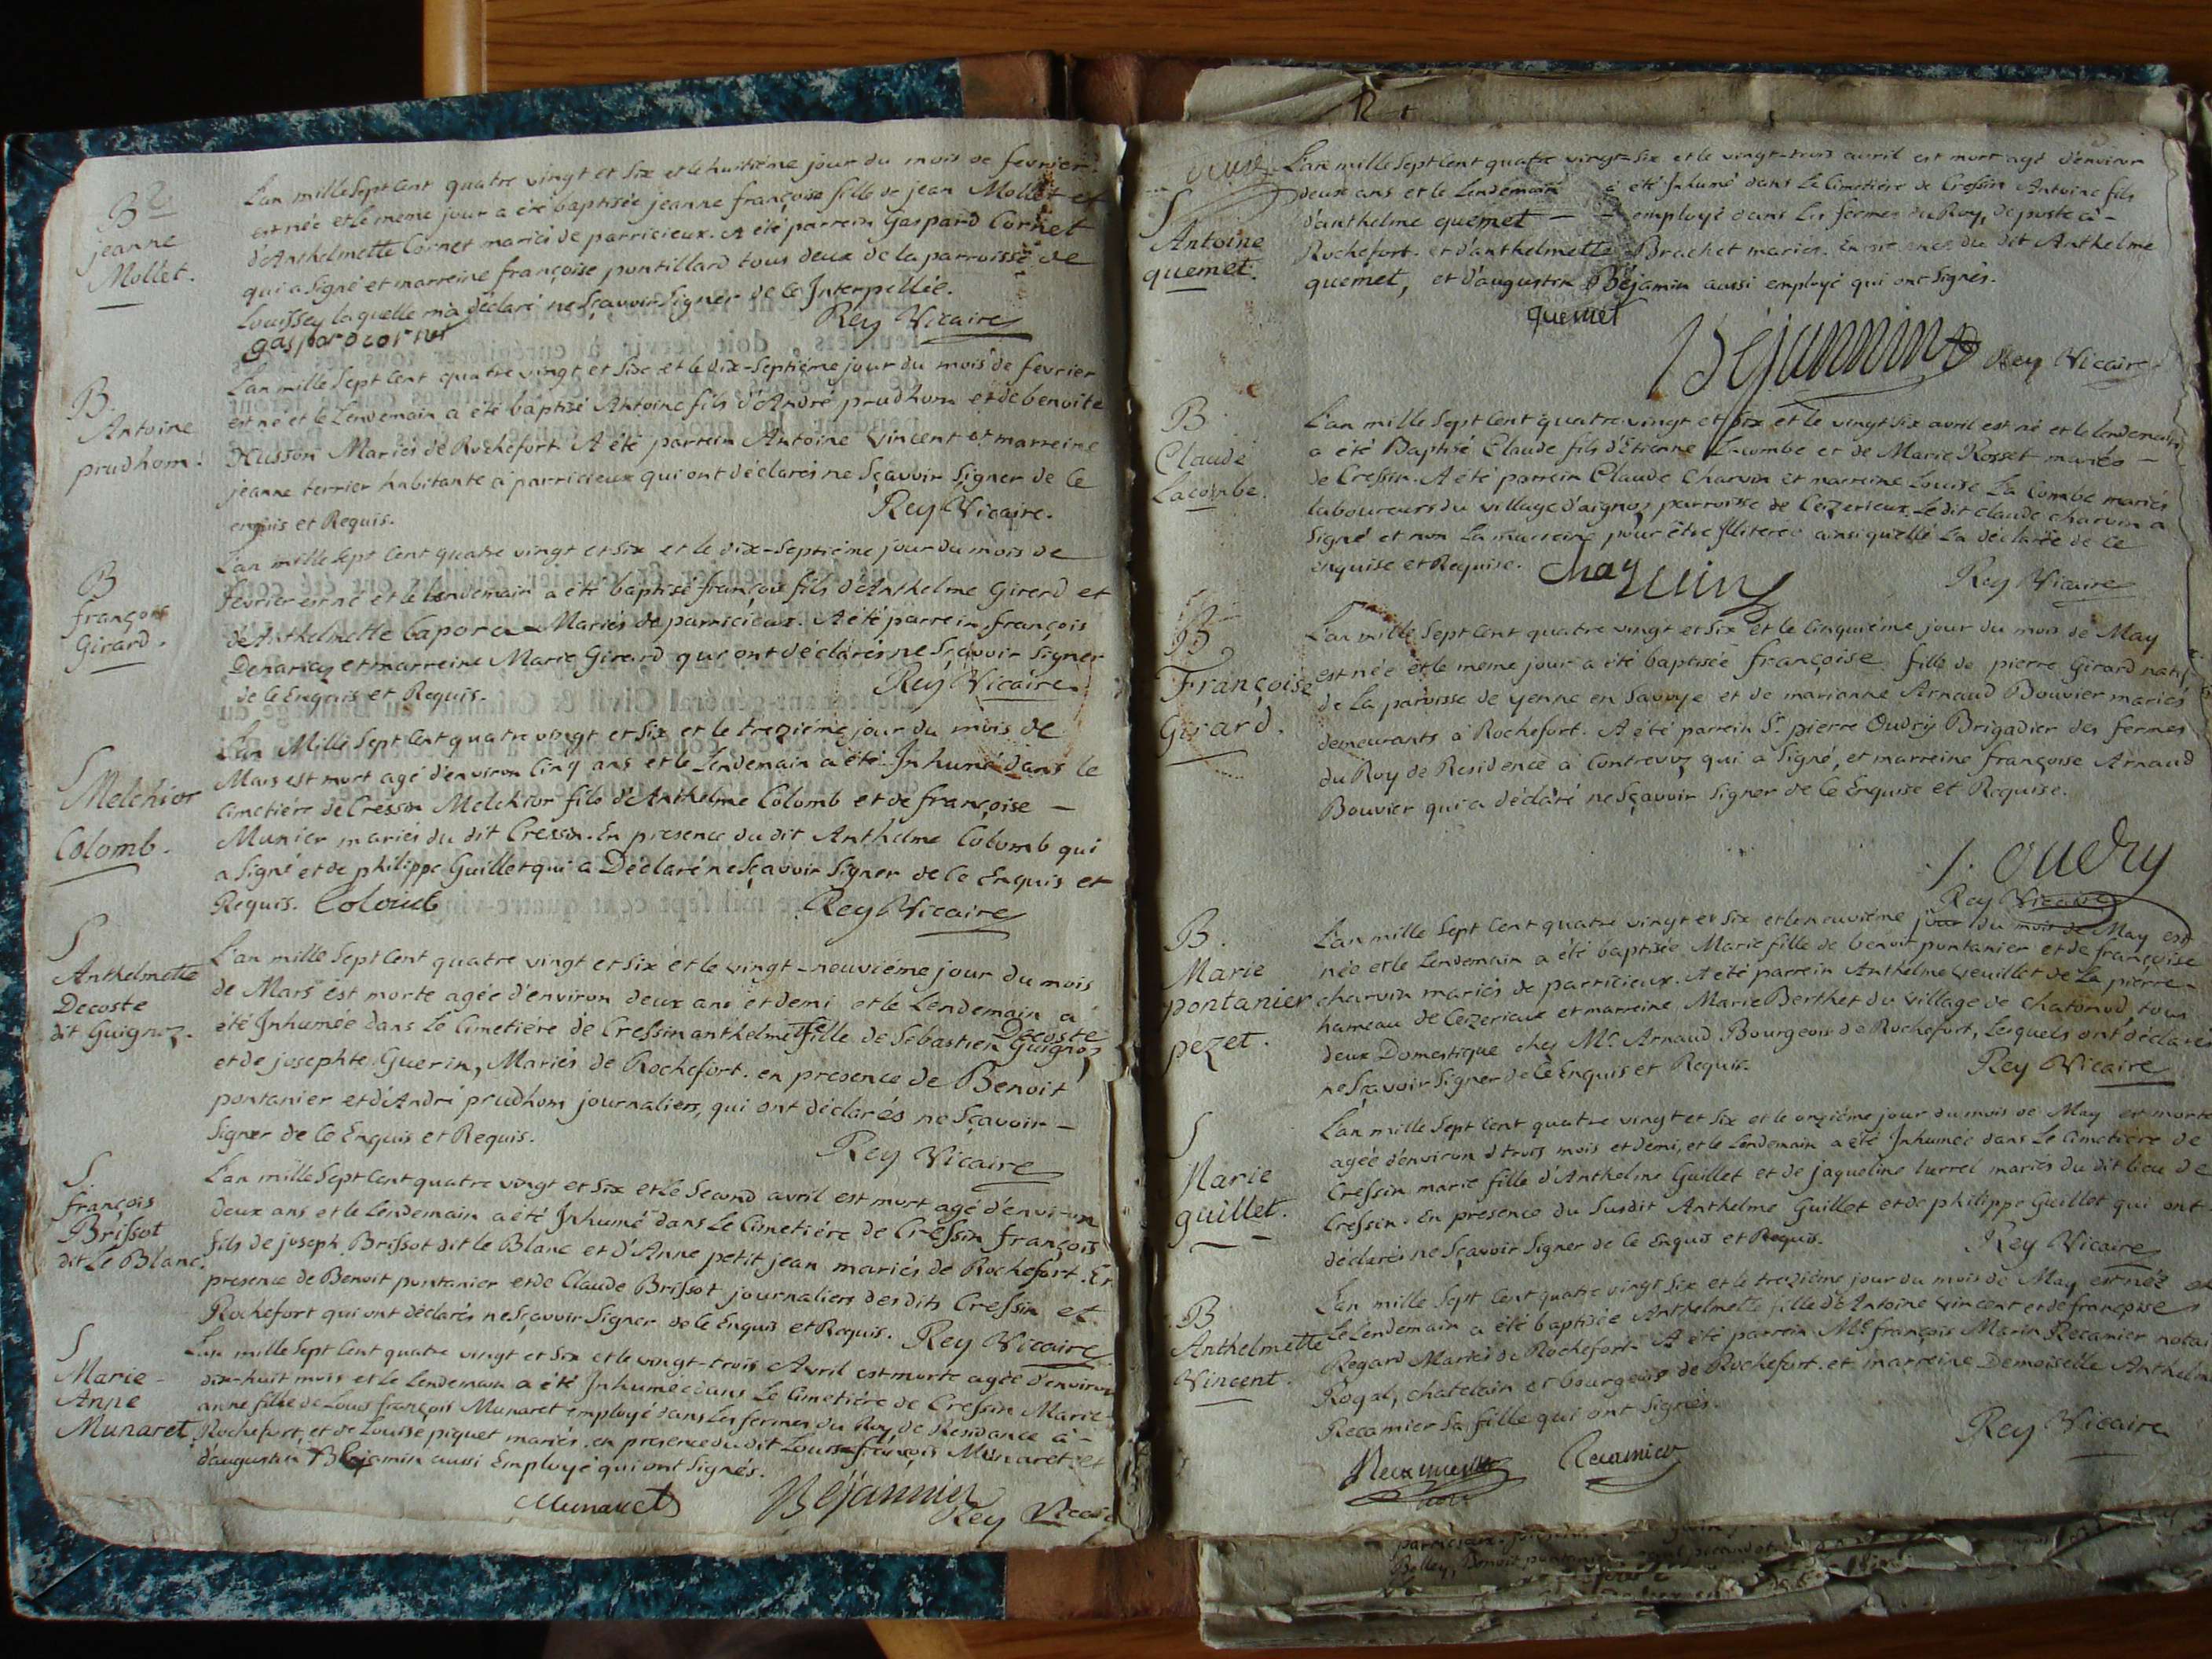 B
jeanne
Mollet.
L'an mille Sept Cent quatre vingt et Six et le huitiéme jour du mois de fevrier
est née et le meme jour a été baptisée jeanne françoise fille de jean Mollet et
d'Anthelmette Cornet mariés de parricieux. A été parrein Gaspard Cornet
qui a Signé et marreine françoise pontillard tous deux de la parroisse de
Louissey laquelle m'a déclaré ne Sçavoir Signer de ce Interpellée.
gaspard cornet
Rey Vicaire
B.
Antoine
prudhom.
L'an mille Sept Cent quatre vingt et Six et le dix-Septiéme jour du mois de fevrier
est né et le Lendemain a été baptisé Antoine fils d'André prudhom et de benoite
Husson Mariés de Rochefort. A été parrein Antoine Vincent et marreine
jeanne terrier habitante à parricieux qui ont déclarés ne Sçavoir Signer de Ce
enquis et Requis.
Rey Vicaire.
B
françois
Girard.
L'an mille Sept Cent quatre vingt et Six et le dix-Septiéme jour du mois de
fevrier est né et le lendemain a été baptisé françois fils d'Anthelme Girerd et
de Anthelmette Capora Mariés de parricieux. A été parrein françois
Demariaz et marreine Marie Girard qui ont déclarés ne Sçavoir Signer
de Ce Enquis et Requis.
Rey Vicaire
S
Melchior
Colomb.
L'an Mille Sept Cent quatre vingt et Six et le treziéme jour du mois de
Mars est mort agé d'environ Cinq ans et le Lendemain a été Inhumé dans le
Cimetiére de Cressin Melchior fils d'Anthelme Colomb et de françoise —
Munier mariés du dit Cressin. En presence du dit Anthelme Colomb qui
a Signé et de philippe Guillet qui a Déclaré ne Sçavoir Signer de Ce Enquis et
Requis. Coloub
Rey Vicaire
S
Anthelmette
Decoste
dit Guignoz.
L'an mille Sept Cent quatre vingt et Six et le vingt-neuviéme jour du mois
de Mars est morte agée d'environ deux ans et demi et le Lendemain a
été Inhumée dans Le Cimetiére de Cressin anthelmette fille de Sebastien Decoste Guignoz
et de josephte Guerin, Mariés de Rochefort. en presence de Benoit
pontanier et d'André prudhom journaliers, qui ont déclarés ne Sçavoir —
Signer de Ce Enquis et Requis.
Rey Vicaire
S.
françois
Brissot
dit Le Blanc.
L'an mille Sept Cent quatre vingt et Six et le Second avril est mort agé d'environ
deux ans et le Lendemain a été Inhumé dans Le Cimetiére de Cressin françois
fils de joseph Brissot dit le Blanc et d'Anne petit jean mariés de Rochefort. En
presence de Benoit pontanier et de Claude Brissot journaliers desdits Cressin et
Rochefort qui ont déclarés ne Sçavoir Signer de Ce Enquis et Requis. Rey Vicaire
S
Marie-
Anne
Munaret
L'an mille Sept Cent quatre vingt et Six et le vingt-trois Avril est morte agée d'environ
dix-huit mois et le Lendemain a été Inhumée dans Le Cimetiére de Cressin Marie-
anne fille de Louis françois Munaret employé dans Les fermes du Roy, de Residance à -
Rochefort, et de Louise piquet mariés. en presence du dit Louis françois Munaret et
d'augustin Bejamin aussi Employé qui ont Signés.
Munaret
Béjannin
Rey Vicaire
S
Antoine
quemet.
L'an mille Sept Cent quatre vingt-Six et le vingt-trois avril est mort agé d'environ
deux ans et le Lendemain a été Inhumé dans Le Cimetiére de Cressin Antoine fils
d'anthelme quemet — employé dans Les fermes du Roy, de poste à -
Rochefort. et d'anthelmette Brachet mariés. En presence du dit Anthelme
quemet, et d'augustin Béjamin aussi employé qui ont Signés.
quemet
Béjannin
Rey Vicaire
B
Claude
Lacombe.
L'an mille Sept Cent quatre vingt et Six et le vingt Six avril est né et le lendemain
a été Baptisé Claude fils d'Etienne Lacombe et de Marie Rosset mariés —
de Cressin. A été parrein Claude Charvin et marreine Louise La Combe mariés
laboureurs du village d'aignoz parroisse de Ceizerieux. Le dit Claude charvin a
Signé et non La marreine pour être Illiterée ainsi qu'elle La déclarée de Ce
enquise et Requise.
Rey Vicaire
B
Françoise
Girard.
L'an mille Sept Cent quatre vingt et Six et le Cinquiéme jour du mois de May
est née et le meme jour a été baptisée françoise fille de pierre Girard natif
de La paroisse de yenne en Savoye et de marianne Arnaud Bouvier mariés
demeurants à Rochefort. A été parrein Sr pierre Oudry Brigadier des fermes
du Roy de Residence à Contrevoz qui a Signé, et marreine françoise Arnaud
Bouvier qui a déclaré ne Sçavoir Signer de Ce Enquise et Requise.
Oudry
Rey Vicaire
B.
Marie
pontanier
pezet.
L'an mille Sept Cent quatre vingt et Six et le neuviéme jour du mois de May est
née et le Lendemain a été baptisée Marie fille de benoit pontanier et de françoise
charvin mariés de parricieux. A été parrein Anthelme veuillet de La pierre -
hameau de Ceizerieux et marreine Marie Berthet du village de chatonod tous
deux Domestique chez Mr Arnaud Bourgeois de Rochefort, Lesquels ont déclarés
ne Sçavoir Signer de Ce Enquis et Requis.
Rey Vicaire
S
Marie
guillet.
L'an mille Sept Cent quatre vingt et Six et le onziéme jour du mois de May est morte
agée d'environ trois mois et demi, et le Lendemain a été Inhumée dans Le Cimetiére de
Cressin marie fille d'Anthelme Guillet et de jaqueline turrel mariés du dit lieu de
Cressin. En presence du Susdit Anthelme Guillet et de philippe Guillet qui ont
déclarés ne Sçavoir Signer de Ce Enquis et Requis.
Rey Vicaire
B
Anthelmette
Vincent.
L'an mille Sept Cent quatre vingt Six et le treziéme jour du mois de May est née et
Le Lendemain a été baptisée Anthelmette fille d'Antoine Vincent et de françoise
Regard Mariés de Rochefort. A été parrein Me françois Marin Recamier notaire
Royal, chatelain et bourgeois de Rochefort. et marreine Demoiselle Anthelme
Recamier Sa fille qui ont Signés.
Recamier
Rey Vicaire